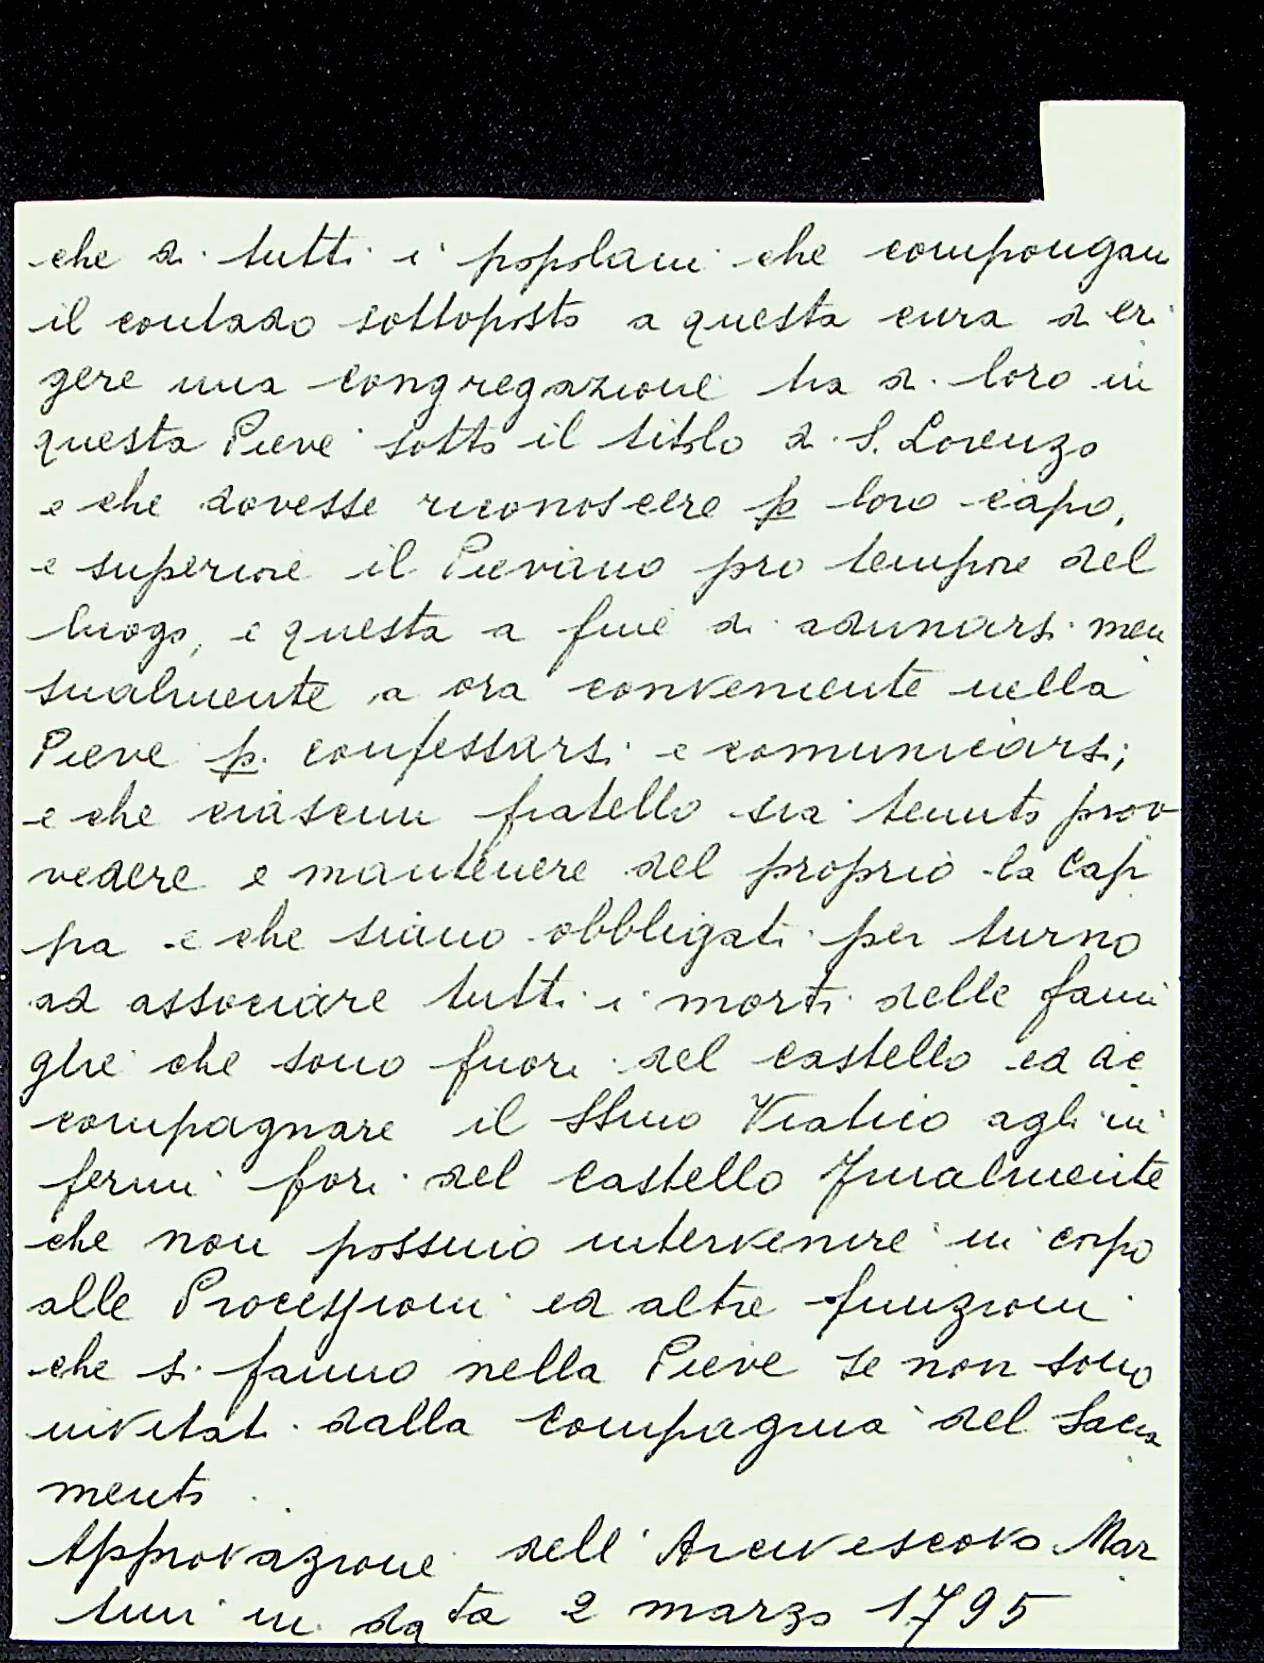 che di tutti i popolani che compongan
il contado sottoposto a questa cura di eri
gere una congregazione tra di loro in
questa Pieve sotto il titolo di S. Lorenzo
e che dovesse riconoscere p loro capo,
e superiore il Pievano pro tempore del
luogo, e questa a fine di adunarsi men
sualmente a ora conveniente nella
Pieve p. confessarsi e comunicarsi;
e che ciascun fratello sia tenuto prov
vedere e mantenere del proprio la Cap
pa e che siano obbligati per turno
ad associare tutti i morti delle fami
glie che sono fuori del castello ed ac
compagnare il SSmo Viatico agli in
fermi fori del Castello finalmente
che non possino intervenire in corpo
alle Processioni ed altre funzioni
che si fanno nella Pieve se non sono
invitati dalla Compagnia del Sacra
mento
Approvazione dell'Arcivescovo Mar
tini in data 2 marzo 1795